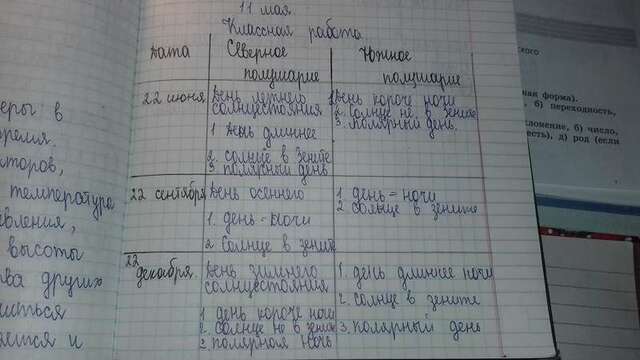 11 мая
Классная работа
Дата
Северное полушарие
Южное полушарие
22 июня
День летнего
солнцестояния
1 День длиннее
2. солнце в зените
3 полярный день
1 День короче ночи
2 солнце не в зените
3. полярный день
22 сентября
День осеннего
1. день = ночи
2 Солнце в зените
1. день = ночи
2 солнце в зените
22 декабря
День зимнего
солнцестояния
1 день короче ночи
2. солнце не в зените
3. полярная ночь
1. день длиннее ночи
2. солнце в зените
3. полярный день
еры в
температура
высоты
ва других
иться
яется и
ного
ная форма).
б) переходность,
лонение, б) число,
есть), д) род (если